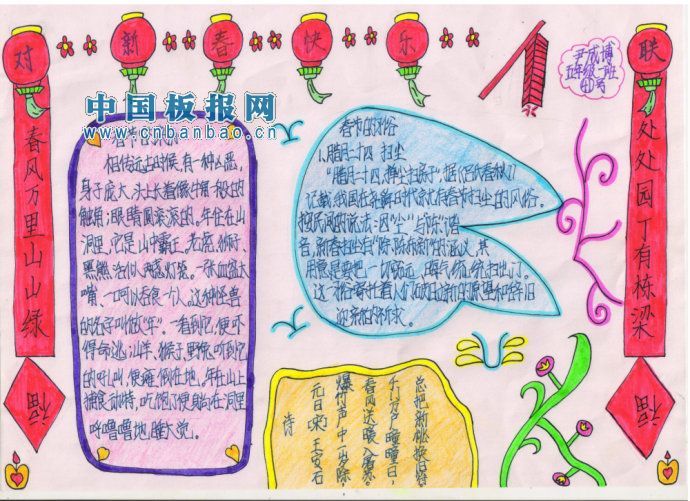 对 新 春 快 乐 联
尹成博
五年级一班
40号
中国板报网
www.cnbanbao.cn
春风万里山山绿
处处园丁有栋梁
福
福
春节的
相传远古时候,有一种凶恶,
身子庞大,头上长着像
触角;眼睛圆滚滚的。年住在山
洞里,它是山中霸王。老虎、狮子、
黑熊
嘴,一口可以吞食一个人,这种怪兽
的名字叫做“年”。一看到它,便吓
得命逃;山羊、猴子、野兔,听到它
的吼叫,便瘫倒在地。年在山上
捕食动物,吃饱了便躺在洞里
呼噜噜地睡大觉。
春节的习俗
1、腊月二十四 扫尘
“腊月二十四,掸尘扫房子”据《吕氏春秋》
记载,我国在尧舜时代就有春节扫尘的风俗。
按民间的说法:因“尘”与“陈”谐
音,新春扫尘有“除陈布新”的涵义,其
用意是要把一切穷运、晦气统统扫出门。
这一习俗寄托着人们破旧立新的愿望和辞旧
迎新的祈求。
诗
元日(宋) 王安石
爆竹声中一岁除,
春风送暖入屠苏。
千门万户曈曈日,
总把新桃换旧符。